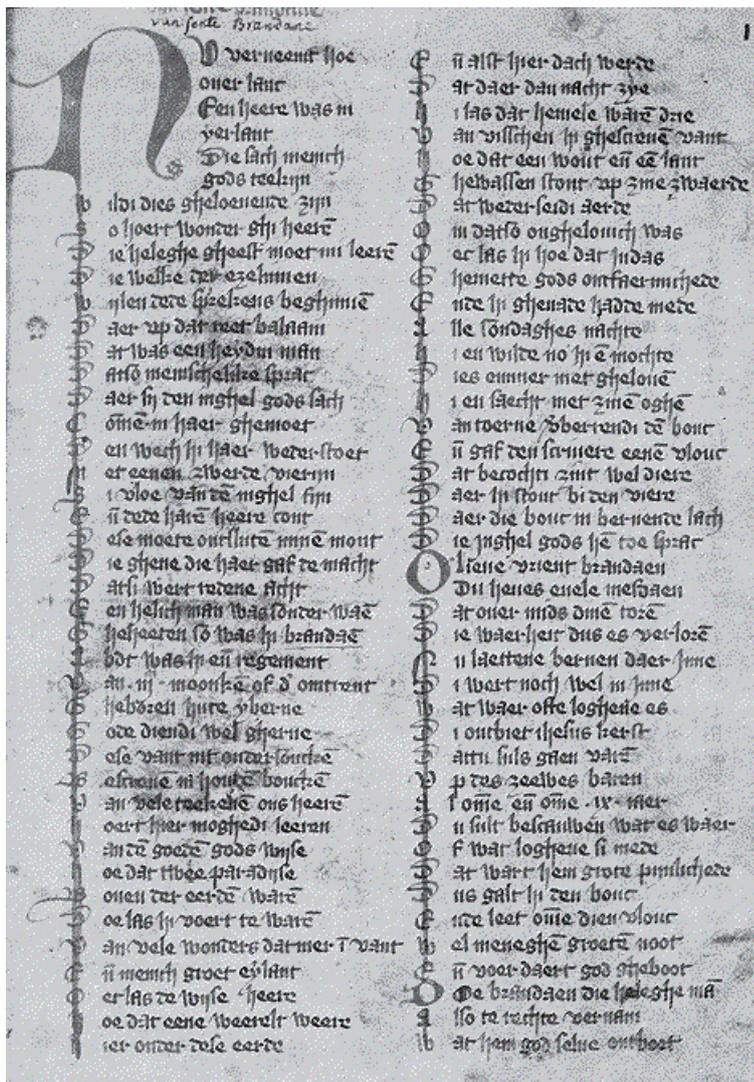 van sente Brandane
1
NU verneemt hoe
ouer lant
Een heere was in
yerlant
Die sach menich
gods teekijn
wildi dies gheloeuende zijn
so hoert wonder ghi heerē
Die heleghe gheest moet mi leerē
Die welke der ezelinnen
wilen dede sprekens beghinnē
Daer vp dat reet balaam
Dat was een heydin man
Datsō menschelike sprac
Daer sij den inghel gods sach
Comē in haer ghemoet
Den wech hi haer wederstoet
Met eenen zwerde vierijn
Si vloe van dē inghel fijn
Eñ dede harē heere cont
Dese moete ontslutē minē mont
Die ghene die haer gaf de macht
Datsi wert redene acht
Een helich man was sonder waē
Gheheeten so was hi brandaē
Abdt was hi eñ regement
Van .iij. moonkē of d' omtrent
Gheboren hute yberne
Gode diendi wel gherne
Dese vant int ondersouckē
Bescreuē in houdē bouckē
Van vele teekenē ons heerē
Hoert hier moghedi leeren
Van dē goedē gods wijse
Hoe dat twee paradijse
Bouen der eerdē warē
Hoe las hi voert te warē
Van vele wonders datmer ī vant
Eñ menich groet eylant
Oec las de wijse heere
Hoe dat eene weerelt weere
Hier onder dese eerde
Eñ alst hier dach werde
Dat daer dan nacht zye
Hi las dat hemele warē drie
Van visschen hi ghescreuē vant
Hoe dat een wout eñ eē lant
Ghewassen stont vp zine zwaerde
Dat wederseidi aerde
Om datsō onghelouich was
Oec las hi hoe dat Judas
Ghenette gods ontfaermichede
Ende hi ghenade hadde mede
Alle sondaghes nachte
Hi en wilde no hī ē mochte
Dies emmer niet ghelouē
Hi en saecht met zinē oghē
Van toerne v'berrendi dē bouc
Eñ gaf den scriuere eenē vlouc
Dat becochti zint wel diere
Daer hi stont bi den viere
Daer die bouc in bernende lach
Die inghel gods hē toe sprac
O lieue vrient brandaen
Du heues euele mesdaen
Dat ouer mids dinē torē
Die waerheit dus es verlorē
Nu laettene bernen daer Jnne
Di wert noch wel in Jnne
Wat waer ofte loghene es
Di ontbiet ihesus kerst
Dattu suls gaen varē
Vp des zeewes baren
Al omē eñ omē .ix. iaer
Du sult bescauwen wat es waer
Of wat loghene si mede
Dat wart hem grote pinlichede
Dus galt hi den bouc
Ende leet omē dien vlouc
Wel meneghē groetē noot
Eñ voer daert god gheboot
Doe brandaen die heleghe mā
Also te rechte vernam
Wat hem god selue ontboet